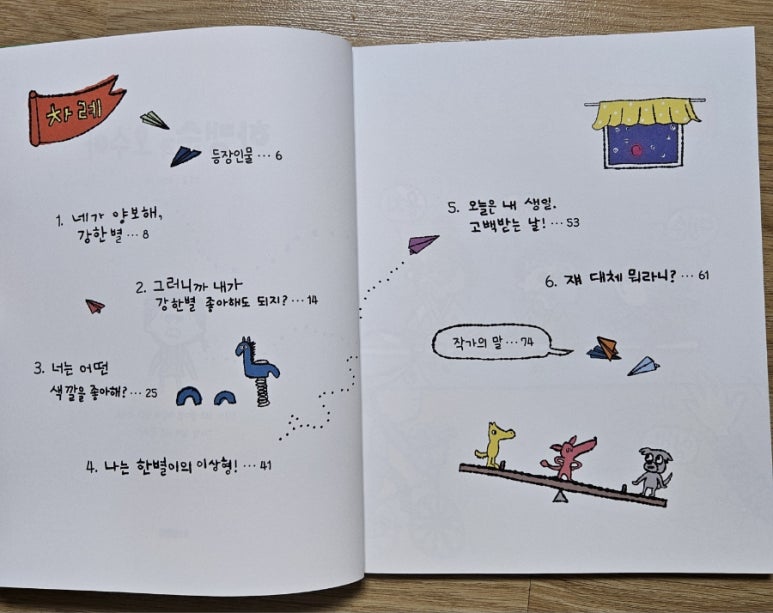 차례
등장인물 … 6
1. 네가 양보해,
강한별 … 8
2. 그러니까 내가
강한별 좋아해도 되지? … 14
3. 너는 어떤
색깔을 좋아해? … 25
4. 나는 한별이의 이상형! … 41
5. 오늘은 내 생일.
고백받는 날! … 53
6. 쟤 대체 뭐라니? … 61
작가의 말 … 74